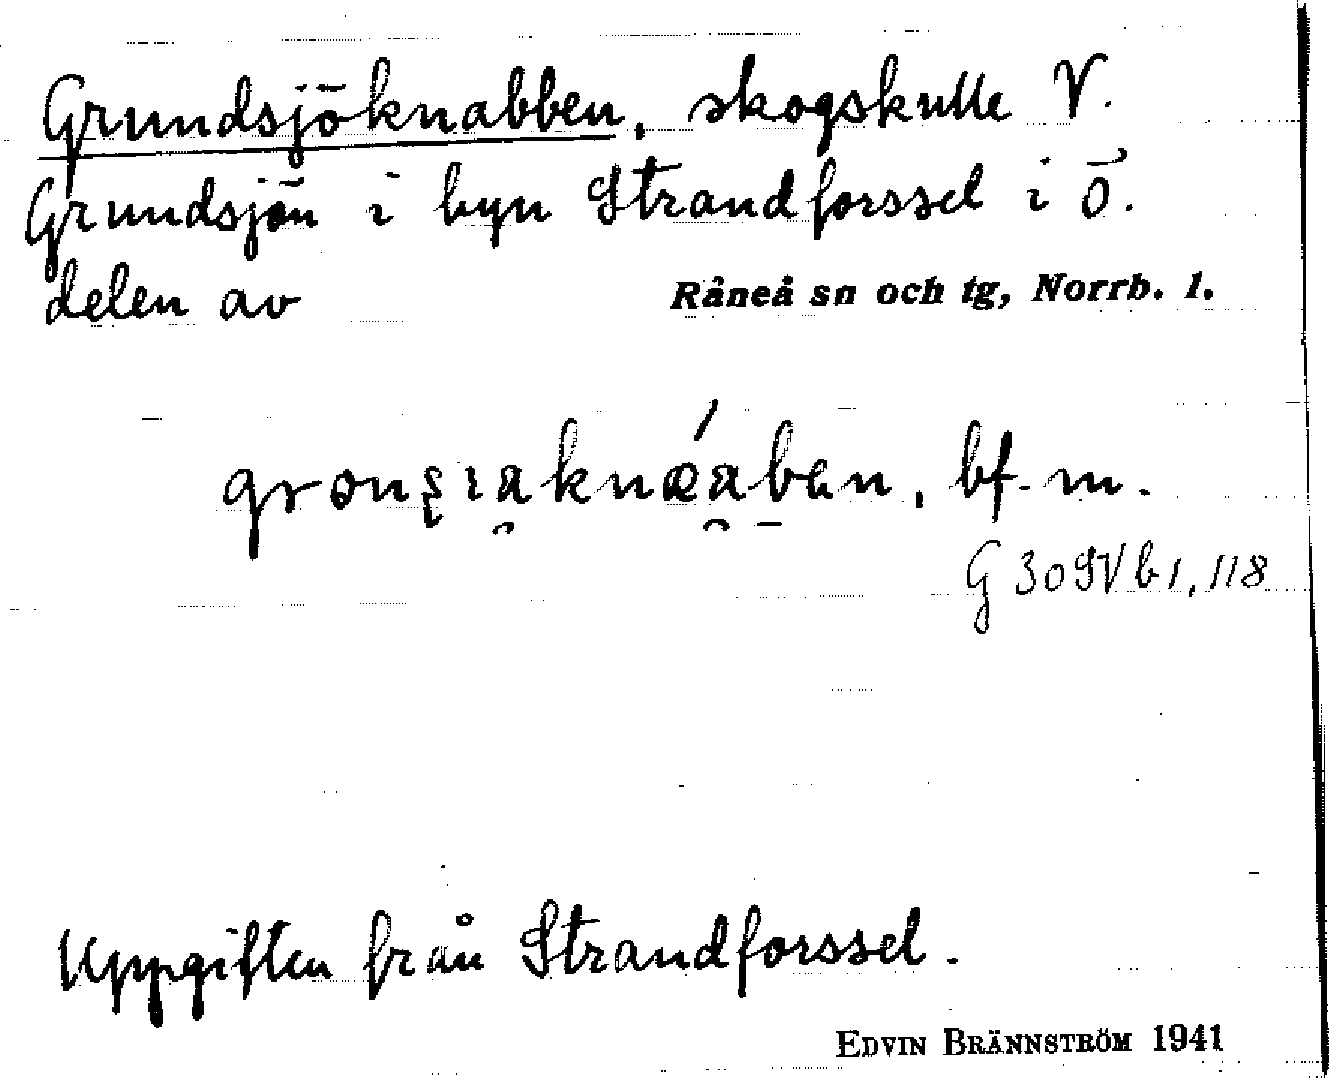 Grundsjöknabben, skogskulle V.
Grundsjön i byn Strandforssel i Ö.
delen av Råneå sn och tg, Norrb. l.
bf. m.
G 309V b1, 118
Uppgiften från Strandforssel.
EDVIN BRÄNNSTRÖM 1941